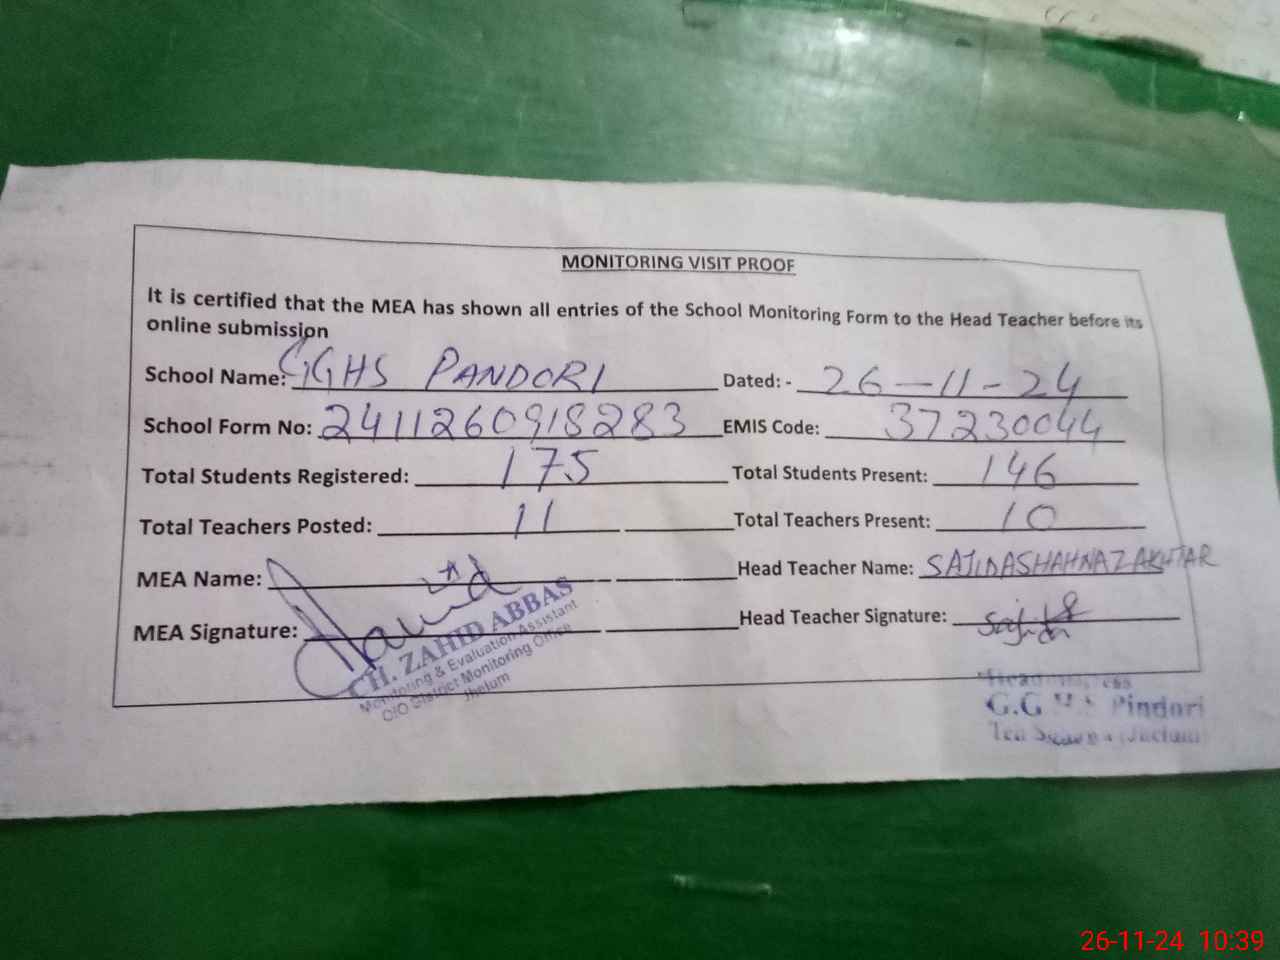 MONITORING VISIT PROOF
It is certified that the MEA has shown all entries of the School Monitoring Form to the Head Teacher before its
online submission
School Name: GGHS PANDORI Dated: - 26-11-24
School Form No: 2411260918283 EMIS Code: 37230044
Total Students Registered: 175 Total Students Present: 146
Total Teachers Posted: 11 Total Teachers Present: 10
MEA Name: Head Teacher Name: SAJIDA SHAHNAZ AKHTAR
MEA Signature: Head Teacher Signature: Sajida
CH. ZAHID ABBAS
Monitoring & Evaluation Assistant
O/O District Monitoring Office
Jhelum
G.G Pindori
26-11-24 10:39